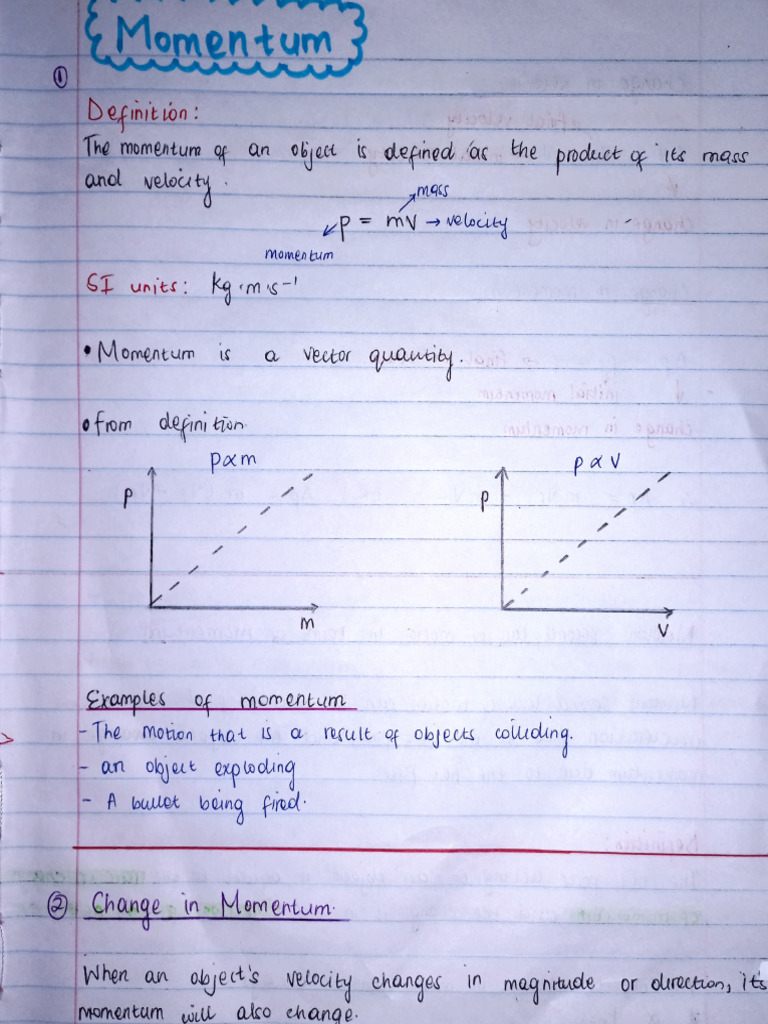 Momentum
①
Definition:
The momentum of an object is defined as the product of its mass
and velocity.
mass
p = mv → velocity
momentum
SI units: kg·m·s⁻¹
• Momentum is a vector quantity.
• from definition
p ∝ m
p ∝ v
p
p
m
v
Examples of momentum
- The motion that is a result of objects colliding.
- an object exploding
- A bullet being fired.
② Change in Momentum.
When an object's velocity changes in magnitude or direction, its
momentum will also change.